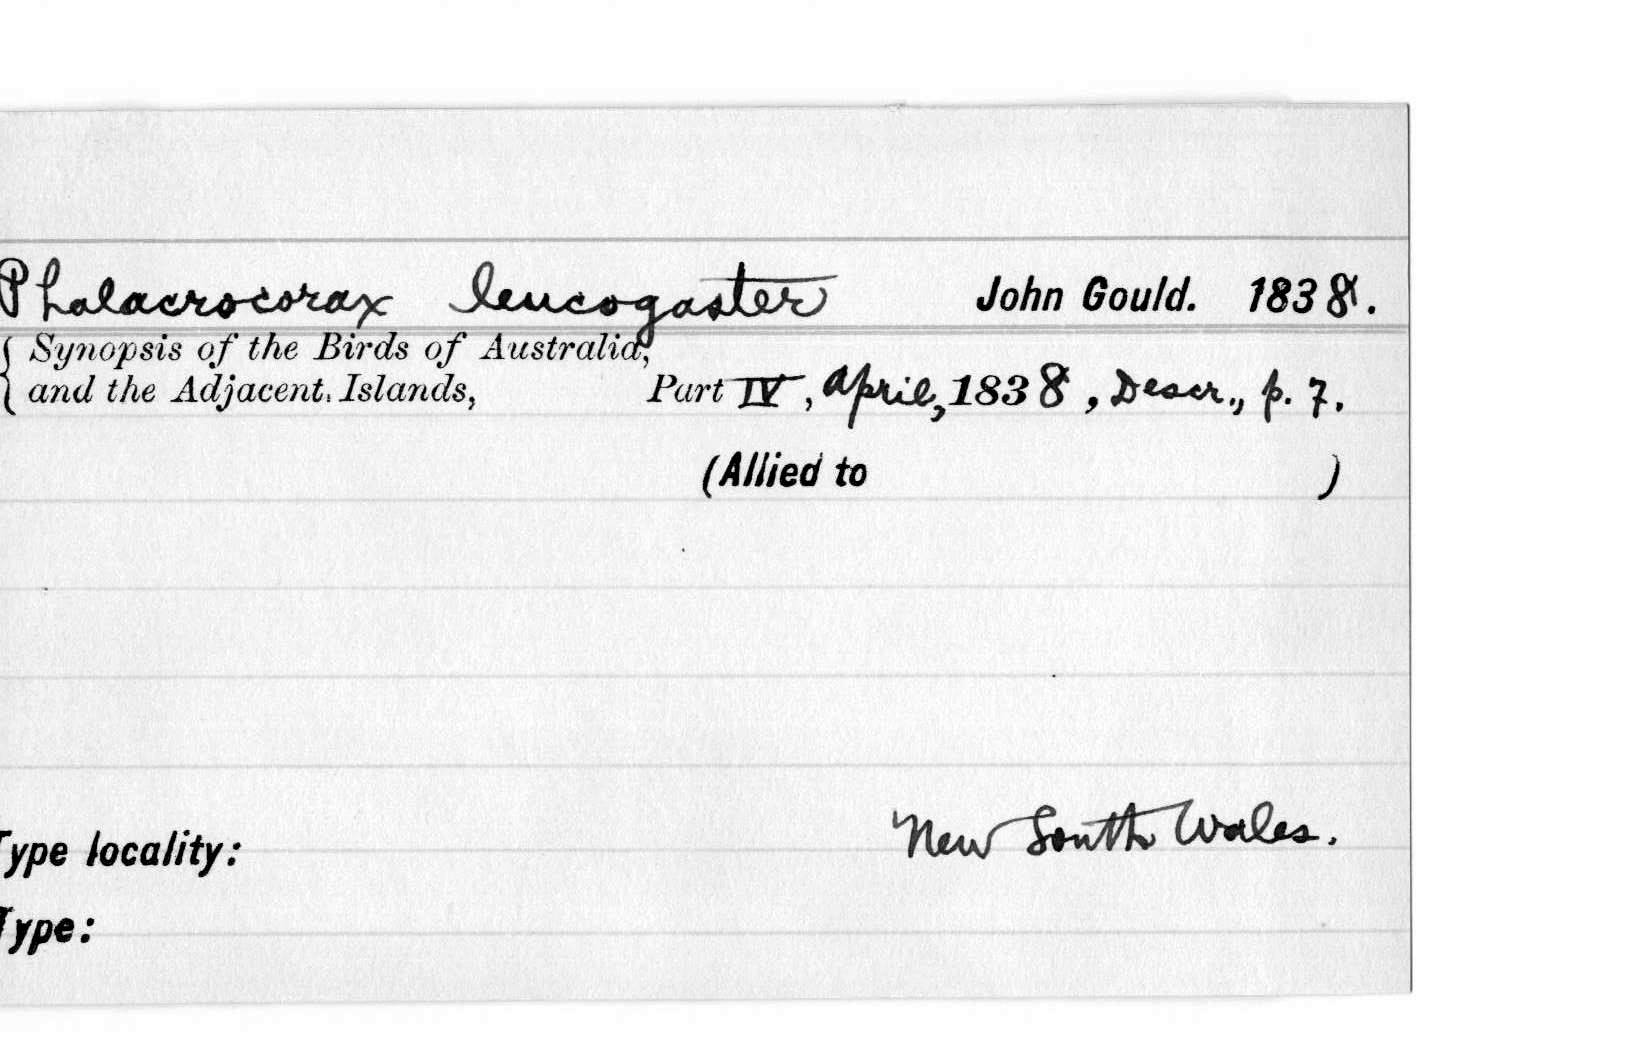 Phalacrocorax leucogaster John Gould. 1838.
Synopsis of the Birds of Australia,
and the Adjacent Islands, Part IV, April, 1838, Descr., p. 7.
(Allied to )
Type locality: New South Wales.
Type: